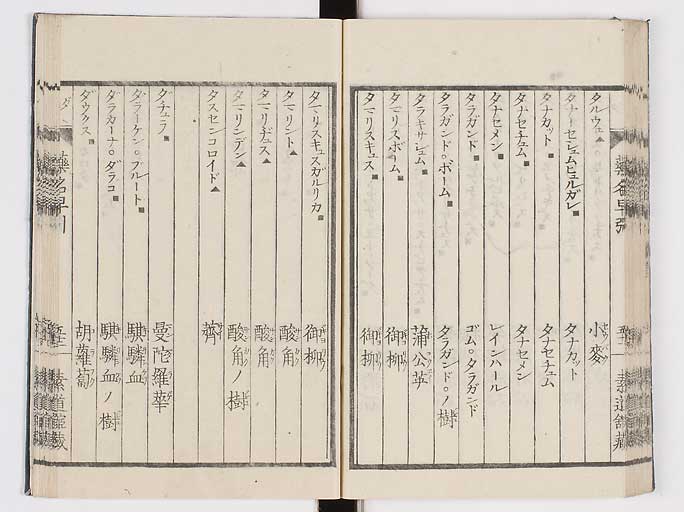 タルウェ▲ 小麥
タナーセシュムヒュルガレ■ タナカット
タナカット■ タナセチュム
タナセチュム■ タナセメン
タナセメン■ レインハール
タラガンド■ ゴム。タラガンド
タラガンド。ボーム■ タラガンド。ノ樹
タラキサシュム■ 蒲公英
タマリスボーム■ 御柳
タマリスキュス■ 御柳
タマリスキュスガルリカ■ 御柳
タマリント▲ 酸角
タマリヂュス▲ 酸角
タマリンデン▲ 酸角ノ樹
タスセンコロイド▲ 薺
ダチュラ■ 曼陀羅華
ダラーケン。ブルート■ 騏驎血
ダラカーナ。ダラコ■ 騏驎血ノ樹
ダウクス■ 胡蘿蔔
ダ
藥名早引